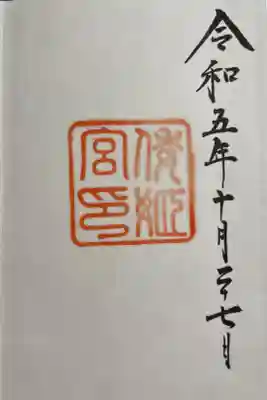 令和五年十月二十七日
倭姫
宮印